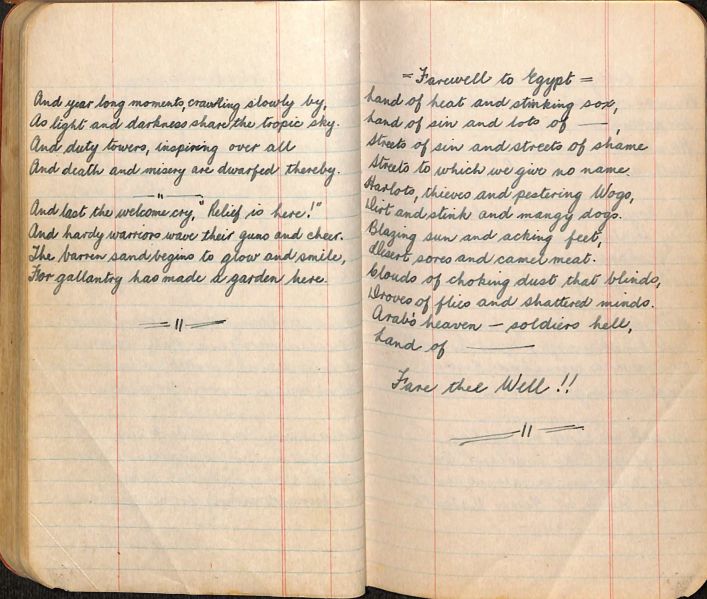 And year long moments, crawling slowly by,
As light and darkness share the tropic sky.
And duty towers, inspiring over all
And death and misery are dwarfed thereby.
— " —
And last the welcome cry, "Relief is here!"
And hardy warriors wave their guns and cheer.
The barren sand begins to glow and smile,
For gallantry has made a garden here.
= " =
= Farewell to Egypt =
Land of heat and stinking sox,
Land of sin and lots of ——,
Streets of sin and streets of shame
Streets to which we give no name.
Harlots, thieves and pestering Wogs,
Dirt and stink and mangy dogs.
Blazing sun and acking feet,
Desert sores and camel meat.
Clouds of choking dust that blinds,
Droves of flies and shattered minds.
Arab's heaven – soldiers hell,
Land of ———
Fare thee Well !!
= " =